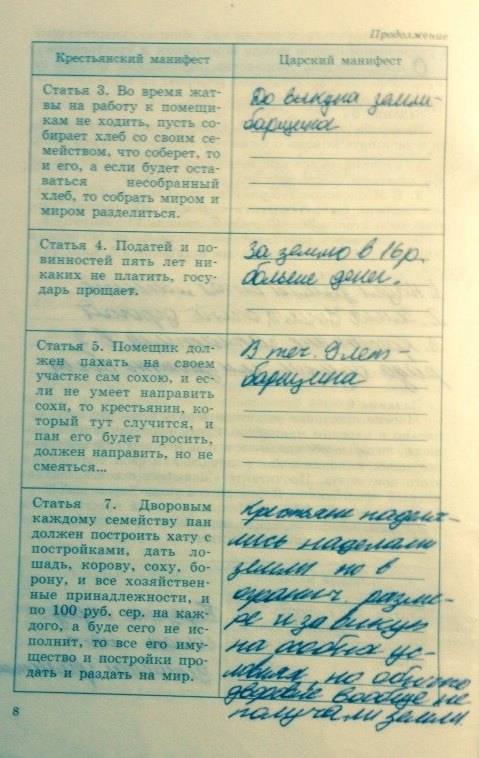 Продолжение
Крестьянский манифест
Царский манифест
Статья 3. Во время жат-
вы на работу к помещи-
кам не ходить, пусть со-
бирает хлеб со своим се-
мейством, что соберет, то
и его, а если будет оста-
ваться несобранный
хлеб, то собрать миром и
миром разделиться.
До выкупа земли-
барщина
Статья 4. Податей и по-
винностей пять лет ни-
каких не платить, госу-
дарь прощает.
За землю в 16 р.
больше денег.
Статья 5. Помещик дол-
жен пахать на своем
участке сам сохою, и ес-
ли не умеет направить
сохи, то крестьянин, ко-
торый тут случится, и
пан его будет просить,
должен направить, но не
смеяться...
В теч. 9 лет-
барщина
Статья 7. Дворовым
каждому семейству пан
должен построить хату с
постройками, дать ло-
шадь, корову, соху, бо-
рону, и все хозяйствен-
ные принадлежности, и
по 100 руб. сер. на каж-
дого, а буде сего не ис-
полнит, то все его иму-
щество и постройки про-
дать и раздать на мир.
Крестьяне наделя-
лись наделами
земли но в
огранич. разме-
ре и за выкуп
на особых ус-
ловиях, но обычно
дворовые вообще не
получали земли.
8